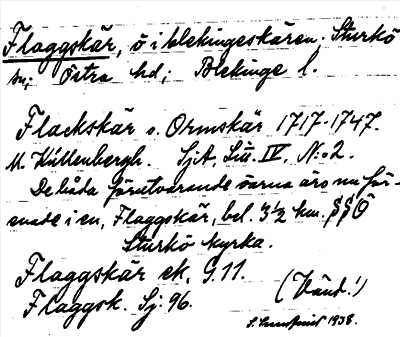 Flaggskär, ö i blekingeskären; Sturkö
sn; Östra hd; Blekinge l.
Flackskär o. Ormskär 1717-1747.
M. Küllenbergh. SjA, Litt. IV, N:o 2.
De båda förutvarande öarna äro nu för-
enade i en, Flaggskär, bel. 3 1/2 km. SSÖ
Sturkö kyrka.
Flaggskär ek. G. 11.
Flaggsk. Sj. 96.
(Vänd!)
1938.